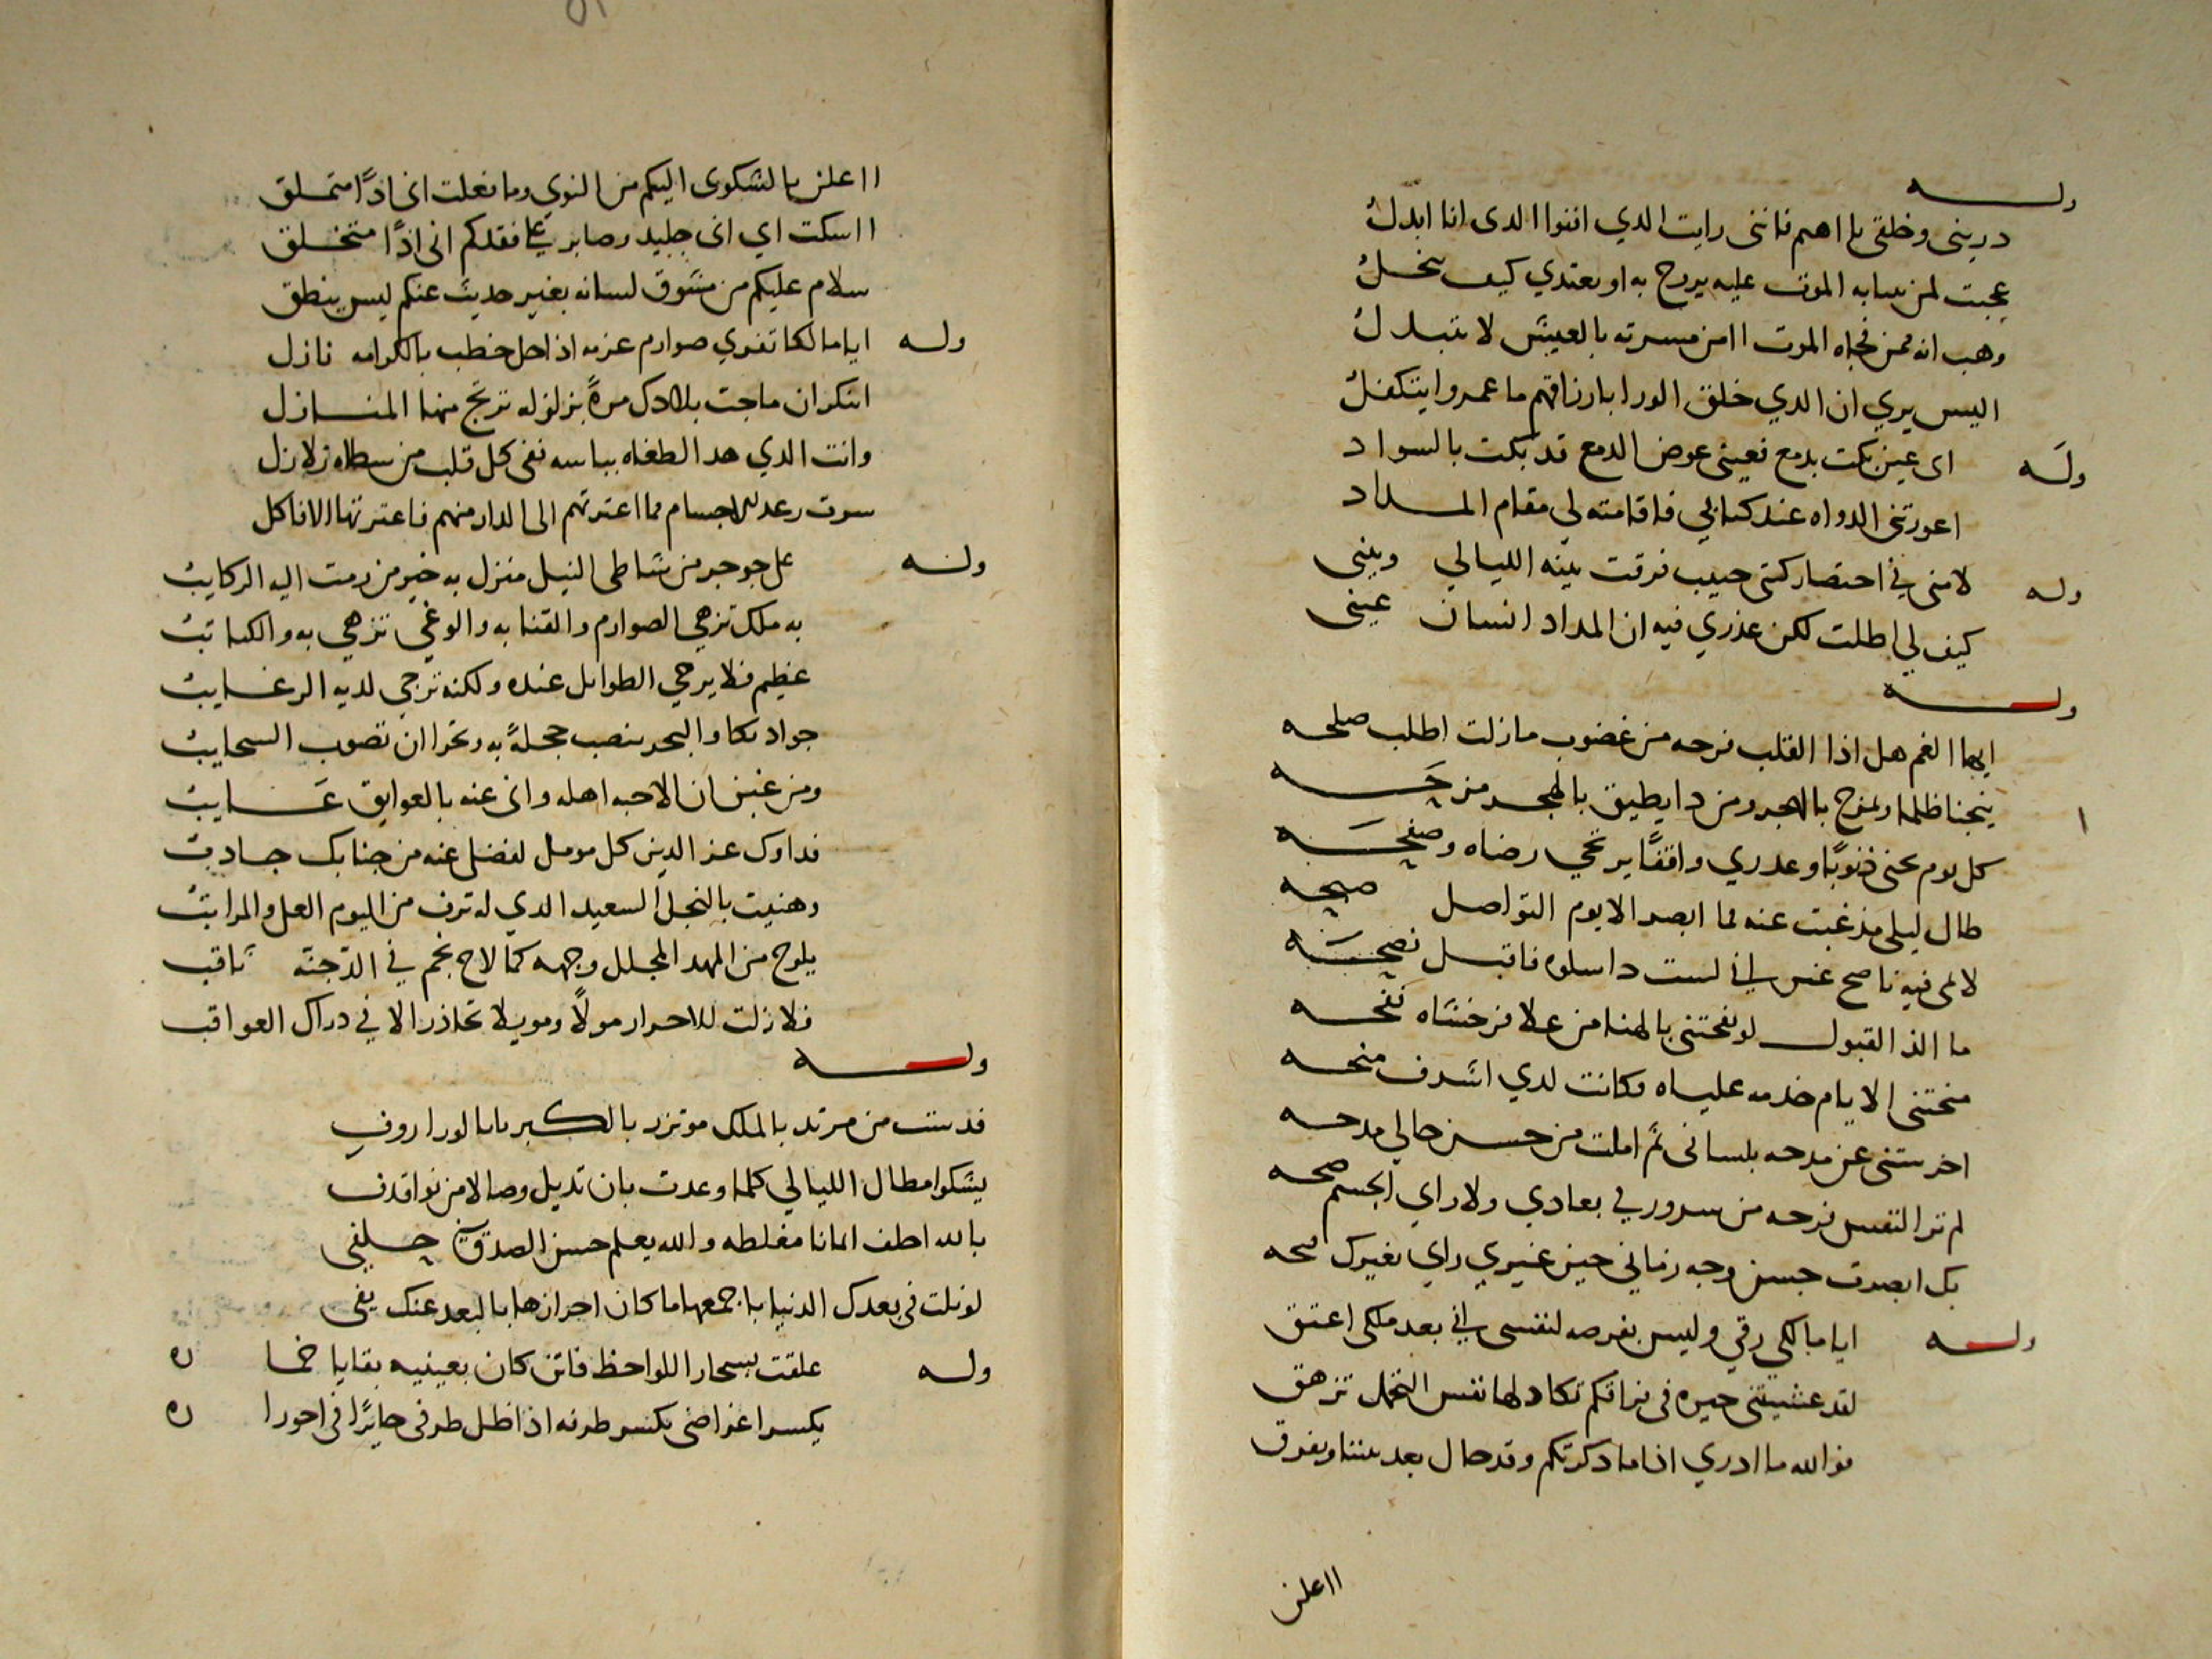 وله
دريني وخلقي يا اهم فانني رايت الدي انفوا الدى انا ابدل
عجبت لمن نسابه الموت عليه يروح به او يغتدي كيف يبخل
وهب انه ممن فجاه الموت اامن مسرته بالعيش لا تتبدل
اليس يري ان الدي خلق الورا بارزاقهم ما عمروا يتكفل
وله اى عين بكت بدمع فعيني عوض الدمع قد بكت بالسواد
اعوزتني الدواه عند كتابي فاقامته لي مقام المداد
وله لامني في احتصار كتبي حبيب فرقت بينه الليالي وبيني
كيف لي اطلت لكن عذري فيه ان المداد انسان عيني
وله
ايها الغم هل اذا القلب فرحه من غضوب مازلت اطلب صلحه
يتجنا ظلما ويمزح بالهجر ومن دا يطيق بالهجر مزحه
كل يوم يجنى ذنوبًا وعدري واقفًا يرتجي رضاه وصفحه
طال ليلي مذ غبت عنه فما ابصر الا يوم التواصل صبحه
لامى فيه ناصح غير اني لست دا سلوه فاقبل نصحه
ما الذ القبول لو نفحتني بالهنا من علا فرخشاه نفحه
منحتنى الايام خدمه علياه فكانت لدي اشرف منحه
اخرستني عن مدحه بلسانى ثم املت من حسن حالي مدحه
لم تر النفس فرحه من سروري في بعادي ولا راي الجسم صحه
بك ابصرت حسن وجه زماني حين غيري راي بغيرك قبحه
وله ايا مالكي رقي وليس بفرصه لنفسى اني بعد ملكي اعتق
لقد عشيتني حيره في فراقكم تكاد لها نفس التجمل تزهق
فوالله ما ادري اذا ما دكرتكم وقد حال بعد بيننا وتفرق
ااعلن
ااعلن بالشكوى اليكم من النوي وما فعلت اني اذًا متملق
ااسكت اي انى جليد وصابر على فقدكم اني اذًا متخلق
سلام عليكم من مشوق لسانه بغير حديث عنكم ليس ينطق
وله ايا مالكا تفري صوارم عزمه اذا حل خطب بالكرامه نازل
اتنكر ان ماجت بلادك مرةً بزلزله ترتج منها المنازل
وانت الدي هد الطغاه بباسه ففي كل قلب من سطاه زلازل
سرت رعده الاجسام مما اعترتهم الى الدار منهم فاعترتها الافاكل
وله على جوجر من شاطى النيل منزل به خير من زمت اليه الركايب
به ملك تزهي الصوارم والقنا به والوغي تزهي به والكتايب
عظيم فلا يرجي الطوايل عنده ولكنه ترجي لديه الرغايب
جواد تكاد البحر ينصب خجلةً به وتحرا ان تصوب السحايب
ومن غبن ان الاحبه اهله وانى عنه بالعوايق غايب
فداوك عز الدين كل مومل لفضل عنه من جنابك جادب
وهنيت بالنجل السعيد الدي له ترف من اليوم العلا والمراتب
يلوح من المهد المجلل وجهه كما لاح نجم في الدجنه ثاقب
فلا زلت للاحرار مولًا ومويلا تحاذر الا في دراك العواقب
وله
فديت من مرتد بالملك موتزر بالكبرياء بالورا روف
يشكوا مطال الليالي كلما وعدت بان تديل وصالا من نوا قذف
بالله احلف ايمانا مغلطه والله يعلم حسن الصدق في حلفي
لو نلت في بعدك الدنيا باجمعها ما كان احرازها بالبعد عنك يفي
وله علقت بسحار اللواحظ فاتن كان بعينيه بقايا خما ره
يكسر اغراضي بكسر طرفه اذا ظل طرفي حايرًا في احورا ره